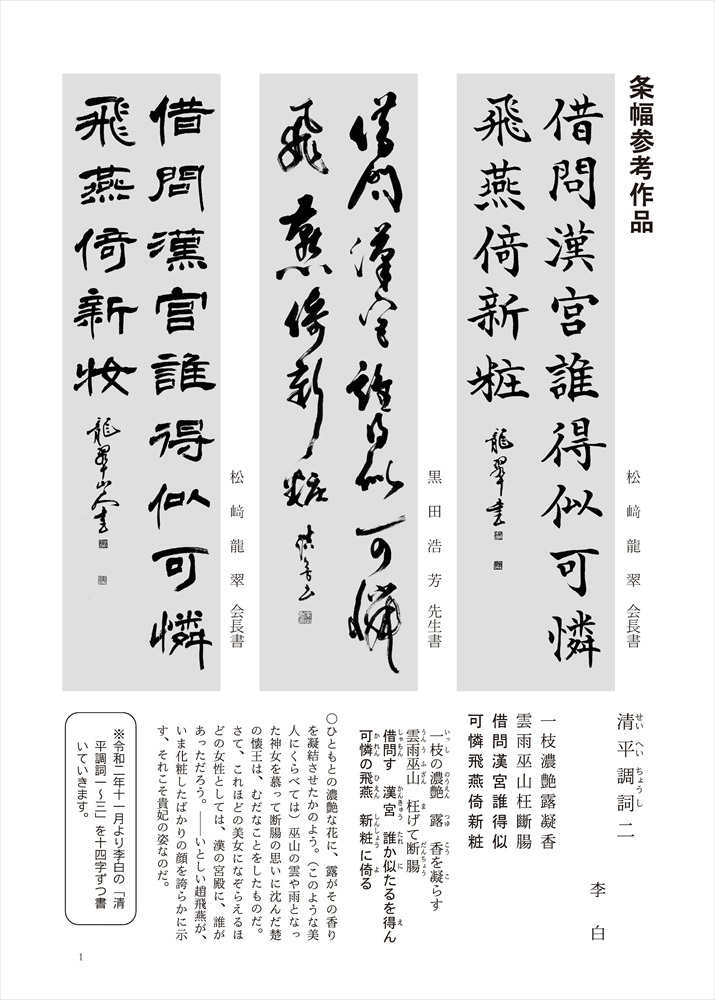 条幅参考作品
借問漢宮誰得似可憐
飛燕倚新粧
龍翠書
松﨑龍翠 会長書
借問漢宮誰得似可憐
飛燕倚新粧
黒田浩芳 先生書
借問漢宮誰得似可憐
飛燕倚新妝
龍翠山人書
松﨑龍翠 会長書
清平調詞二
せいへいちょうし
李白
一枝濃艶露凝香
雲雨巫山枉斷腸
借問漢宮誰得似
可憐飛燕倚新粧
一枝の濃艶 露 香を凝らす
いっし のうえん つゆ こう こ
雲雨巫山 枉げて断腸
うんうふざん ま だんちょう
借問す 漢宮 誰か似たるを得ん
しゃもん かんきゅう たれ に え
可憐の飛燕 新粧に倚る
かれん ひえん しんしょう よ
〇ひともとの濃艶な花に、露がその香り
を凝結させたかのよう。（このような美
人にくらべては）巫山の雲や雨となっ
た神女を慕って断腸の思いに沈んだ楚
の懐王は、むだなことをしたものだ。
さて、これほどの美女になぞらえるほ
どの女性としては、漢の宮殿に、誰が
あっただろう。――いとしい趙飛燕が、
いま化粧したばかりの顔を誇らかに示
す、それこそ貴妃の姿なのだ。
※令和二年十一月より李白の「清
平調詞一～三」を十四字ずつ書
いていきます。
1